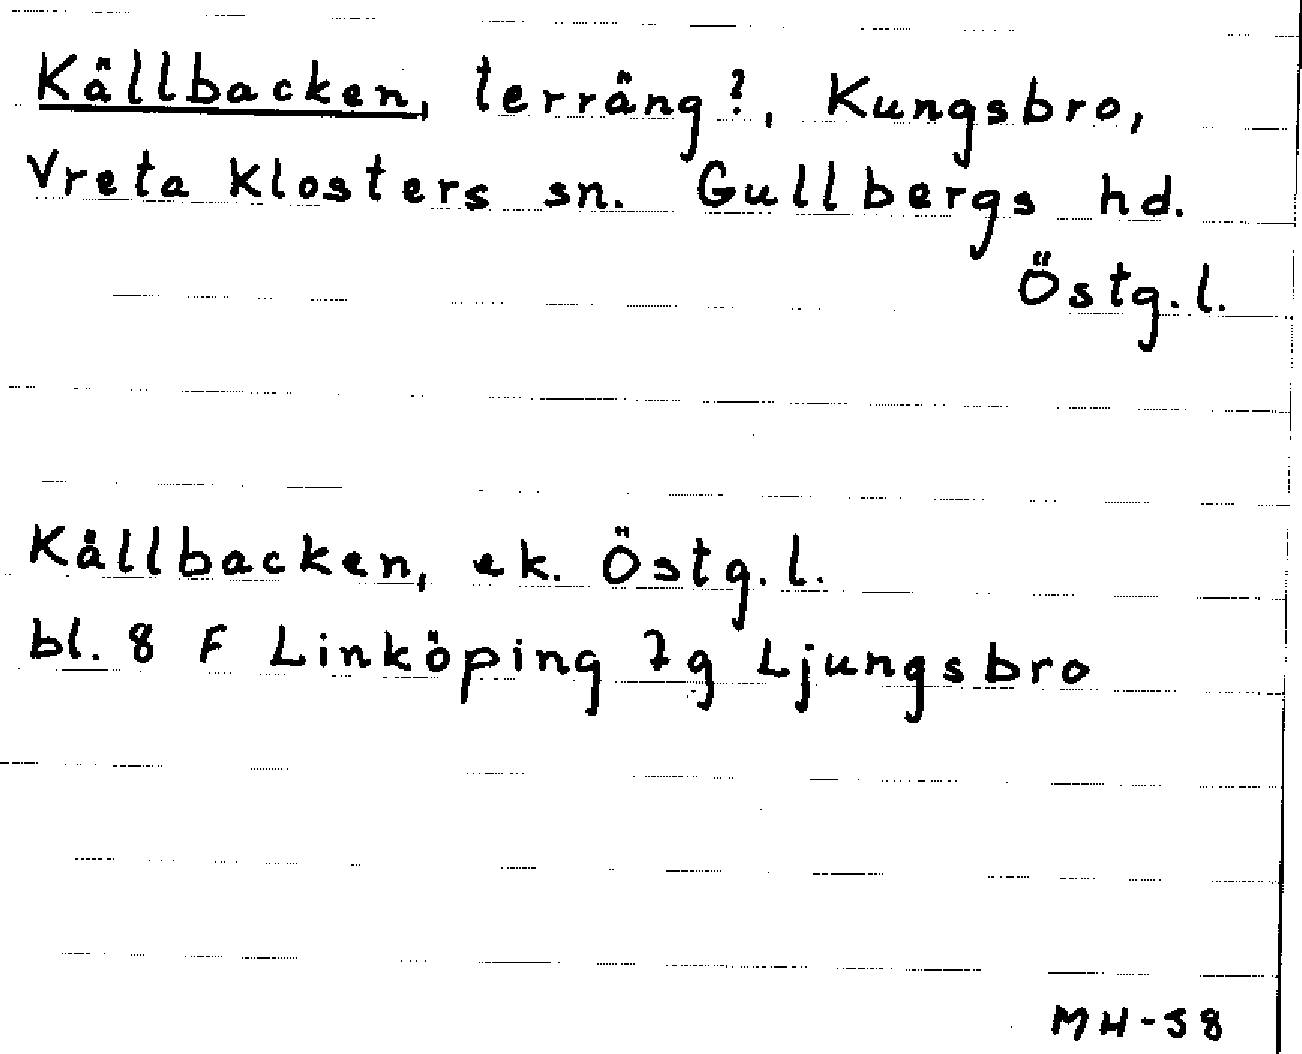 Källbacken, terräng?, Kungsbro,
Vreta Klosters sn. Gullbergs hd.
Östg.l.
Källbacken, ek. Östg.l.
bl. 8 F Linköping 7g Ljungsbro
MH-58